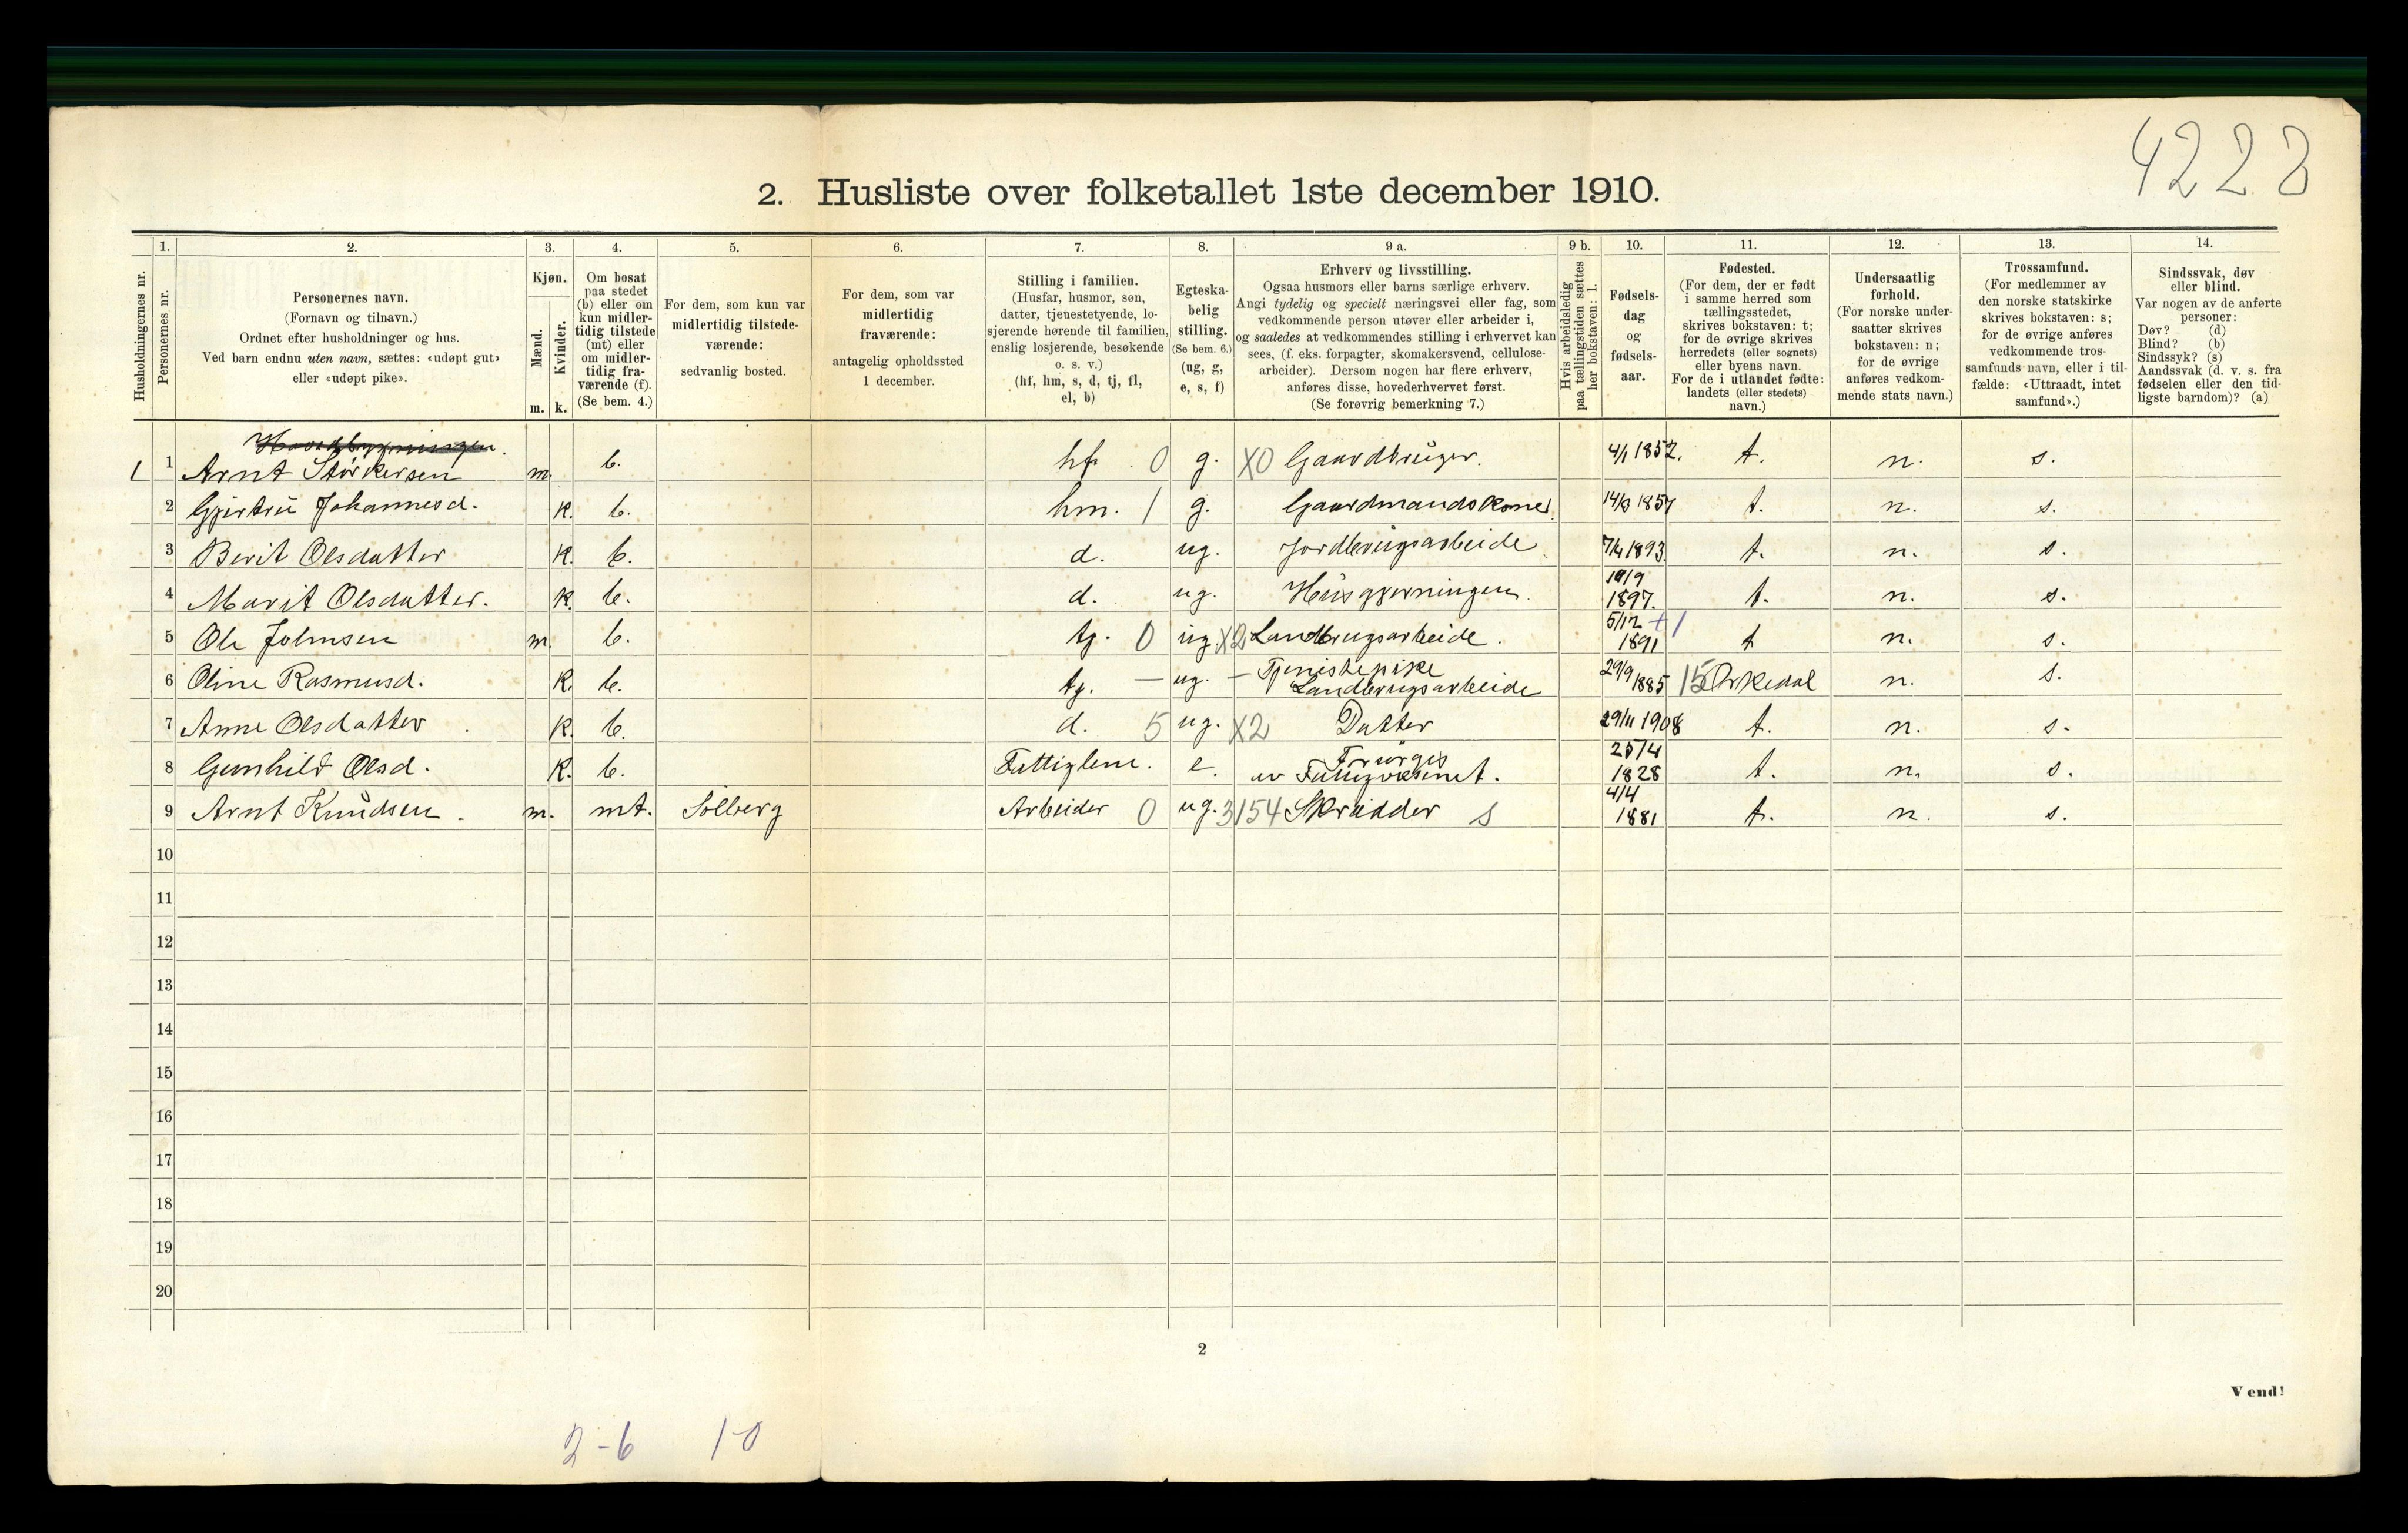 4223
2. Husliste over folketallet 1ste december 1910.
Husholdningernes nr.
1.
Personernes nr.
2.
Personernes navn.
(Fornavn og tilnavn.)
Ordnet efter husholdninger og hus.
Ved barn endnu uten navn, sættes: «udøpt gut»
eller «udøpt pike».
3.
Kjøn.
Mænd.
Kvinder.
m. k.
4.
Om bosat
paa stedet
(b) eller om
kun midler-
tidig tilstede
(mt) eller
om midler-
tidig fra-
værende (f).
(Se bem. 4.)
5.
For dem, som kun var
midlertidig tilstede-
værende:
sedvanlig bosted.
6.
For dem, som var
midlertidig
fraværende:
antagelig opholdssted
1 december.
7.
Stilling i familien.
(Husfar, husmor, søn,
datter, tjenestetyende, lo-
sjerende hørende til familien,
enslig losjerende, besøkende
o. s. v.)
(hf, hm, s, d, tj, fl,
el, b)
8.
Egteska-
belig
stilling.
(Se bem. 6.)
(ug, g,
e, s, f)
9 a.
Erhverv og livsstilling.
Ogsaa husmors eller barns særlige erhverv.
Angi tydelig og specielt næringsvei eller fag, som
vedkommende person utøver eller arbeider i,
og saaledes at vedkommendes stilling i erhvervet kan
sees, (f. eks. forpagter, skomakersvend, cellulose-
arbeider). Dersom nogen har flere erhverv,
anføres disse, hovederhvervet først.
(Se forøvrig bemerkning 7.)
9 b.
Hvis arbeidsledig
paa tællingstiden sættes
her bokstaven: l.
10.
Fødsels-
dag
og
fødsels-
aar.
11.
Fødested.
(For dem, der er født
i samme herred som
tællingsstedet,
skrives bokstaven: t;
for de øvrige skrives
herredets (eller sognets)
eller byens navn.
For de i utlandet fødte:
landets (eller stedets)
navn.)
12.
Undersaatlig
forhold.
(For norske under-
saatter skrives
bokstaven: n;
for de øvrige
anføres vedkom-
mende stats navn.)
13.
Trossamfund.
(For medlemmer av
den norske statskirke
skrives bokstaven: s;
for de øvrige anføres
vedkommende tros-
samfunds navn, eller i til-
fælde: «Uttraadt, intet
samfund».)
14.
Sindssvak, døv
eller blind.
Var nogen av de anførte
personer:
Døv? (d)
Blind? (b)
Sindssyk? (s)
Aandssvak (d. v. s. fra
fødselen eller den tid-
ligste barndom)? (a)
Hovedbygningen.
1 1 Arnt Størkersen m. b. hf. 0 g. X0 Gaardbruger. 4/1 1852. t. n. s.
2 Gjertru Johannesd. k. b. hm. 1 g. Gaardmandskone. 14/3 1857 t. n. s.
3 Berit Olsdatter k. b. d. ug. Jordbrugsarbeide. 7/4 1893 t. n. s.
4 Marit Olsdatter. k. b. d. ug. Husgjerningen. 19/9 1897. t. n. s.
5 Ole Johnsen m. b. tj. 0 ug X2 Landbrugsarbeide. 5/12 1891 +1 t n. s.
6 Oline Rasmusd. k. b. tj. — ug. — Tjenistepike Landbrugsarbeide 29/9 1885 15 Orkedal n. s.
7 Anne Olsdatter k. b. d. 5 ug. X2 Datter 29/11 1908 t. n. s.
8 Gunhild Olsd. k. b. Fattiglem. e. Forsørges av Fattigvæsenet. 25/4 1828 t. n. s.
9 Arnt Knudsen. m. mt. Solberg Arbeider 0 ug. 3154 Skrædder s 4/4 1881 t. n. s.
10
11
12
13
14
15
16
17
18
19
20
2
Vend!
2-6 1-0